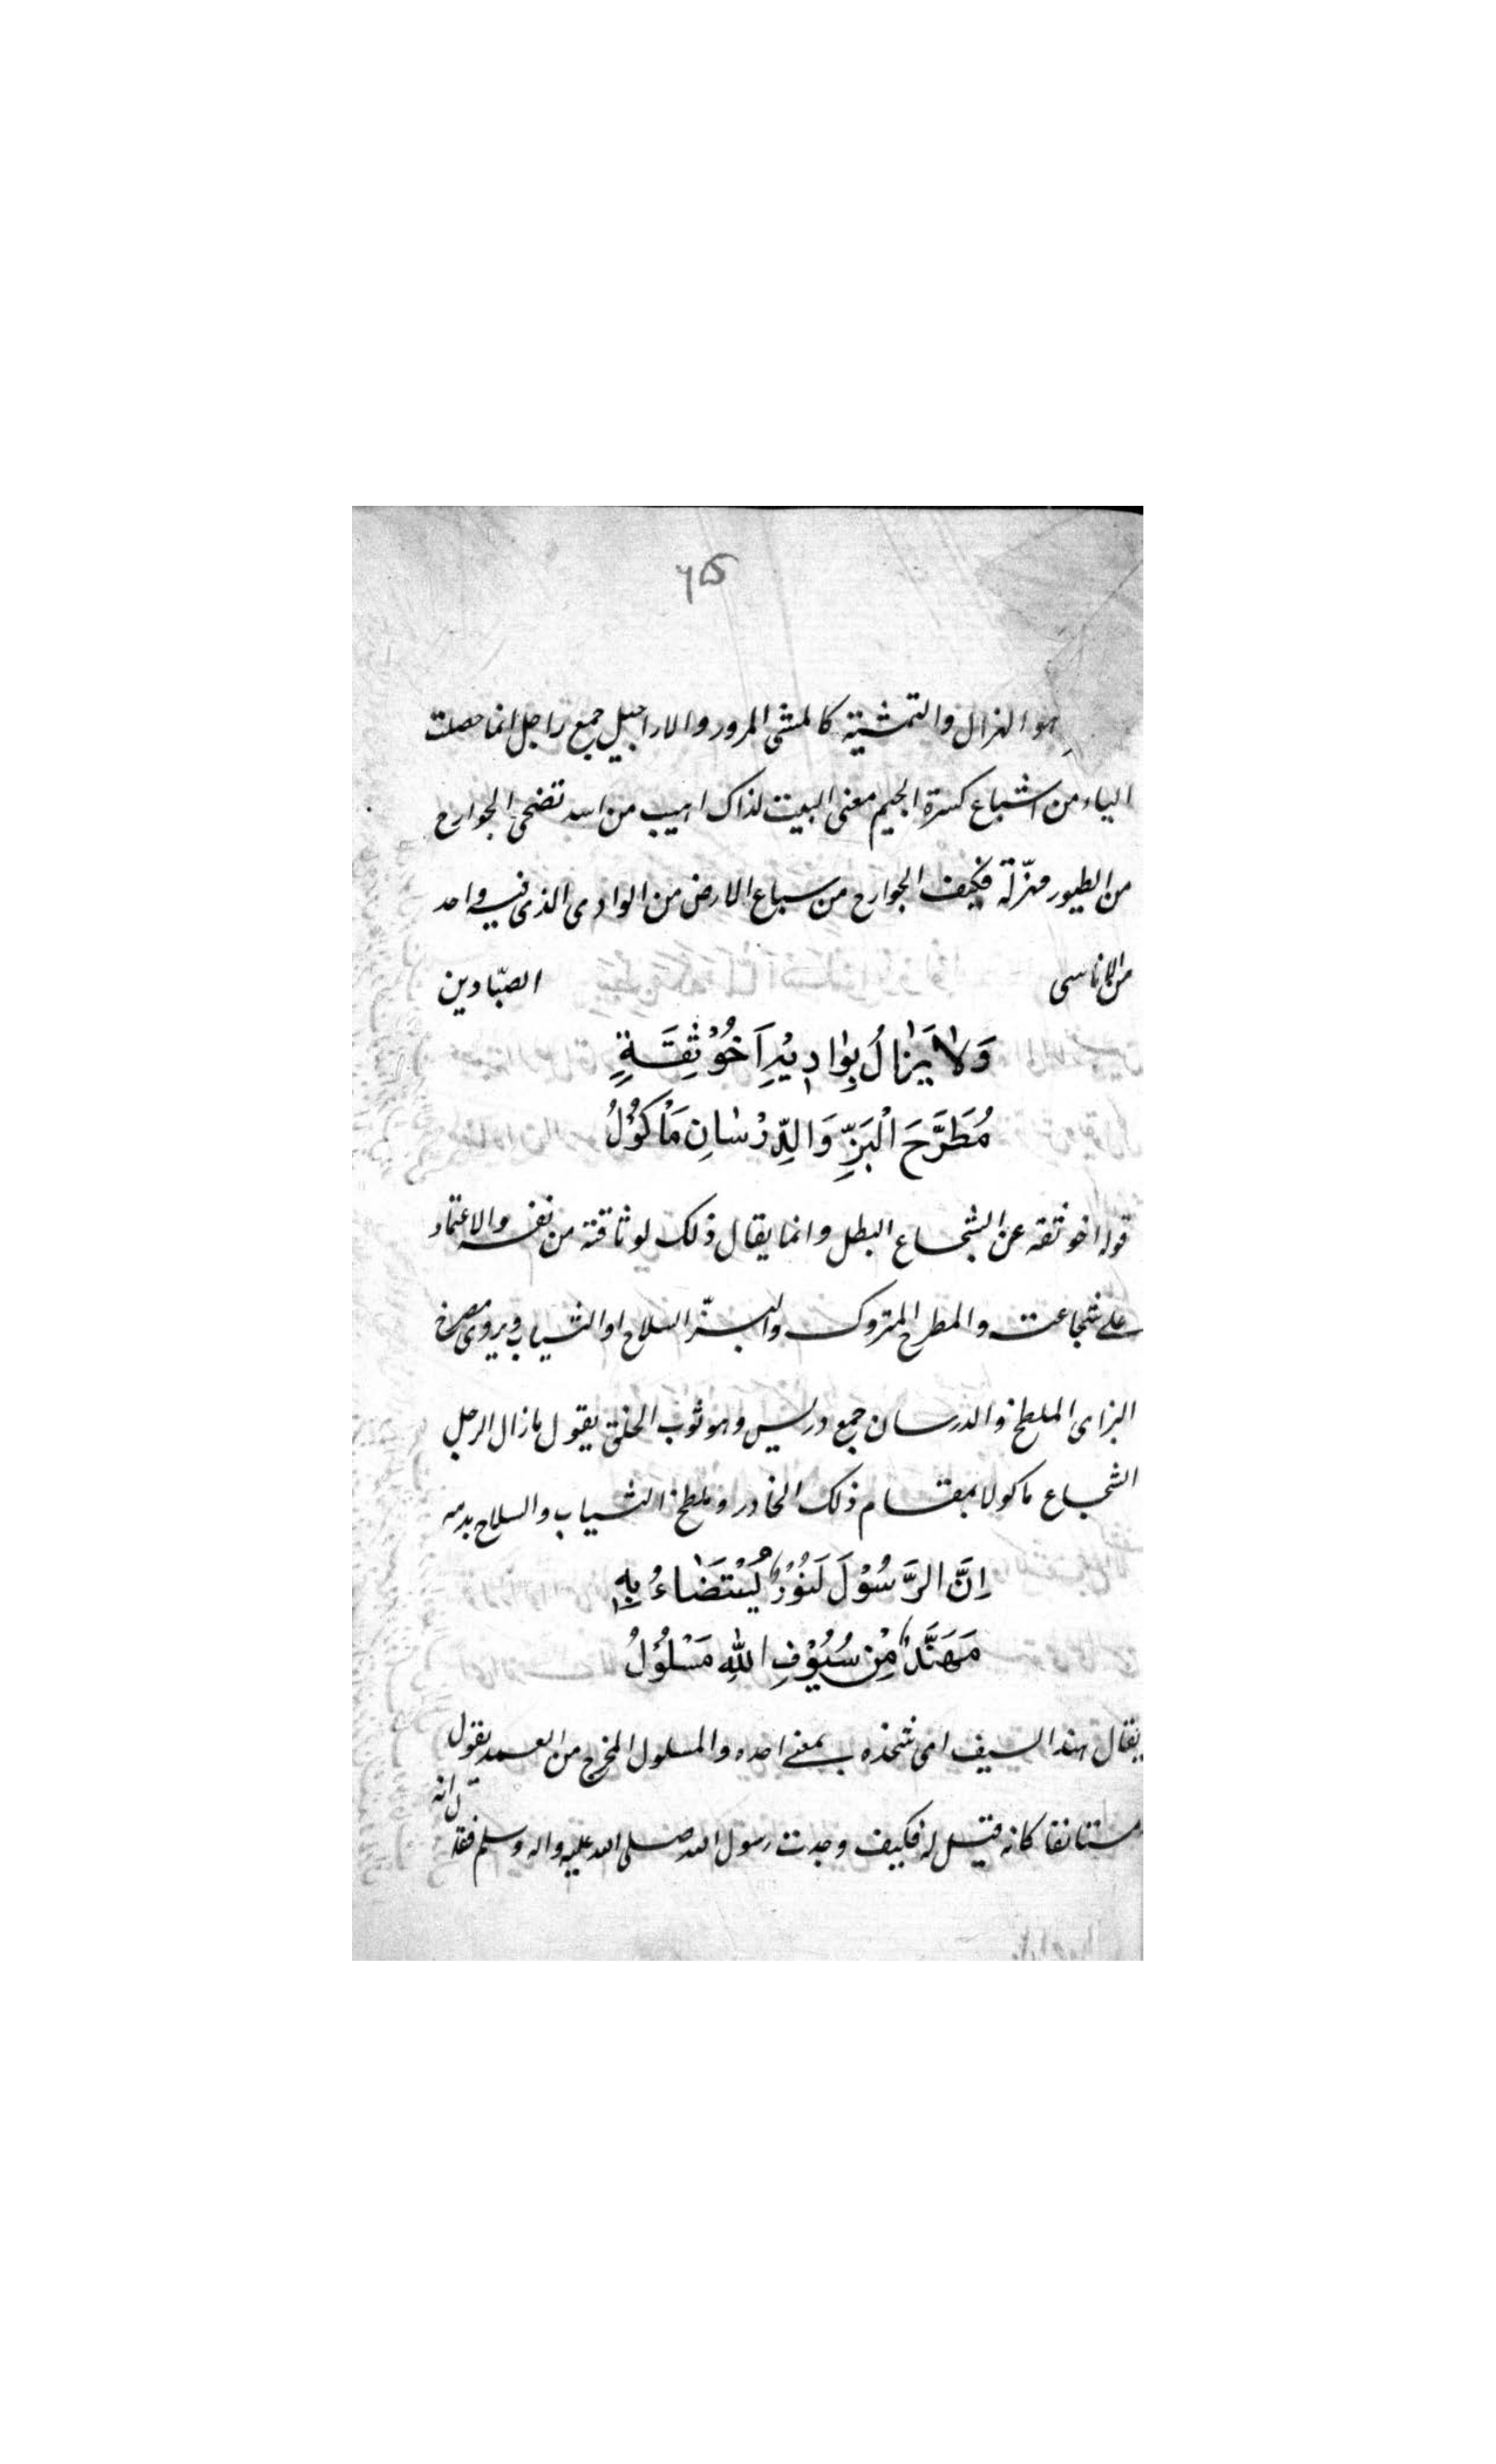 هو الهزال والتمشية كالمشى المرور والاراجيل جمع راجل انما حصلت
الياء من اشباع كسرة الجيم معنى البيت لذاك اهيب من اسد تضحى الجوارح
من الطيور مهزلة فكيف الجوارح من سباع الارض من الوادى الذى فيه واحد
من الاناسى الصيّادين
وَلاَ يَزَالُ بِوَادِيْهِ اَخُوْثِقَةٍ
مُطَرَّحَ الْبَزِّ وَالدِّرْسَانِ مَاْكُوْلُ
قوله اخو ثقه عن الشجاع البطل وانما يقال ذلك لوثاقته من نفسه والاعتماد
على شجاعته والمطرح المتروك والبزّ السلاح او الثياب ويروى مضرخ
البز اى الملطخ والدرسان جمع دريس وهو ثوب الخلق يقول مازال الرجل
الشجاع ماكولا بمقام ذلك الخادر وملطخ الثياب والسلاح بدمه
اِنَّ الرَّسُوْلَ لَنُوْرٌ يُسْتَضَاءُ بِهٖ
مَهَنَّدٌ مِنْ سُيُوْفِ اللّٰهِ مَسْلُوْلُ
يقال هند السيف اى شحذه بمعنى احده والمسلول المخرج من الغمد يقول
مستانفا كانه قيل له فكيف وجدت رسول الله صلى الله عليه واله وسلم فقال انه